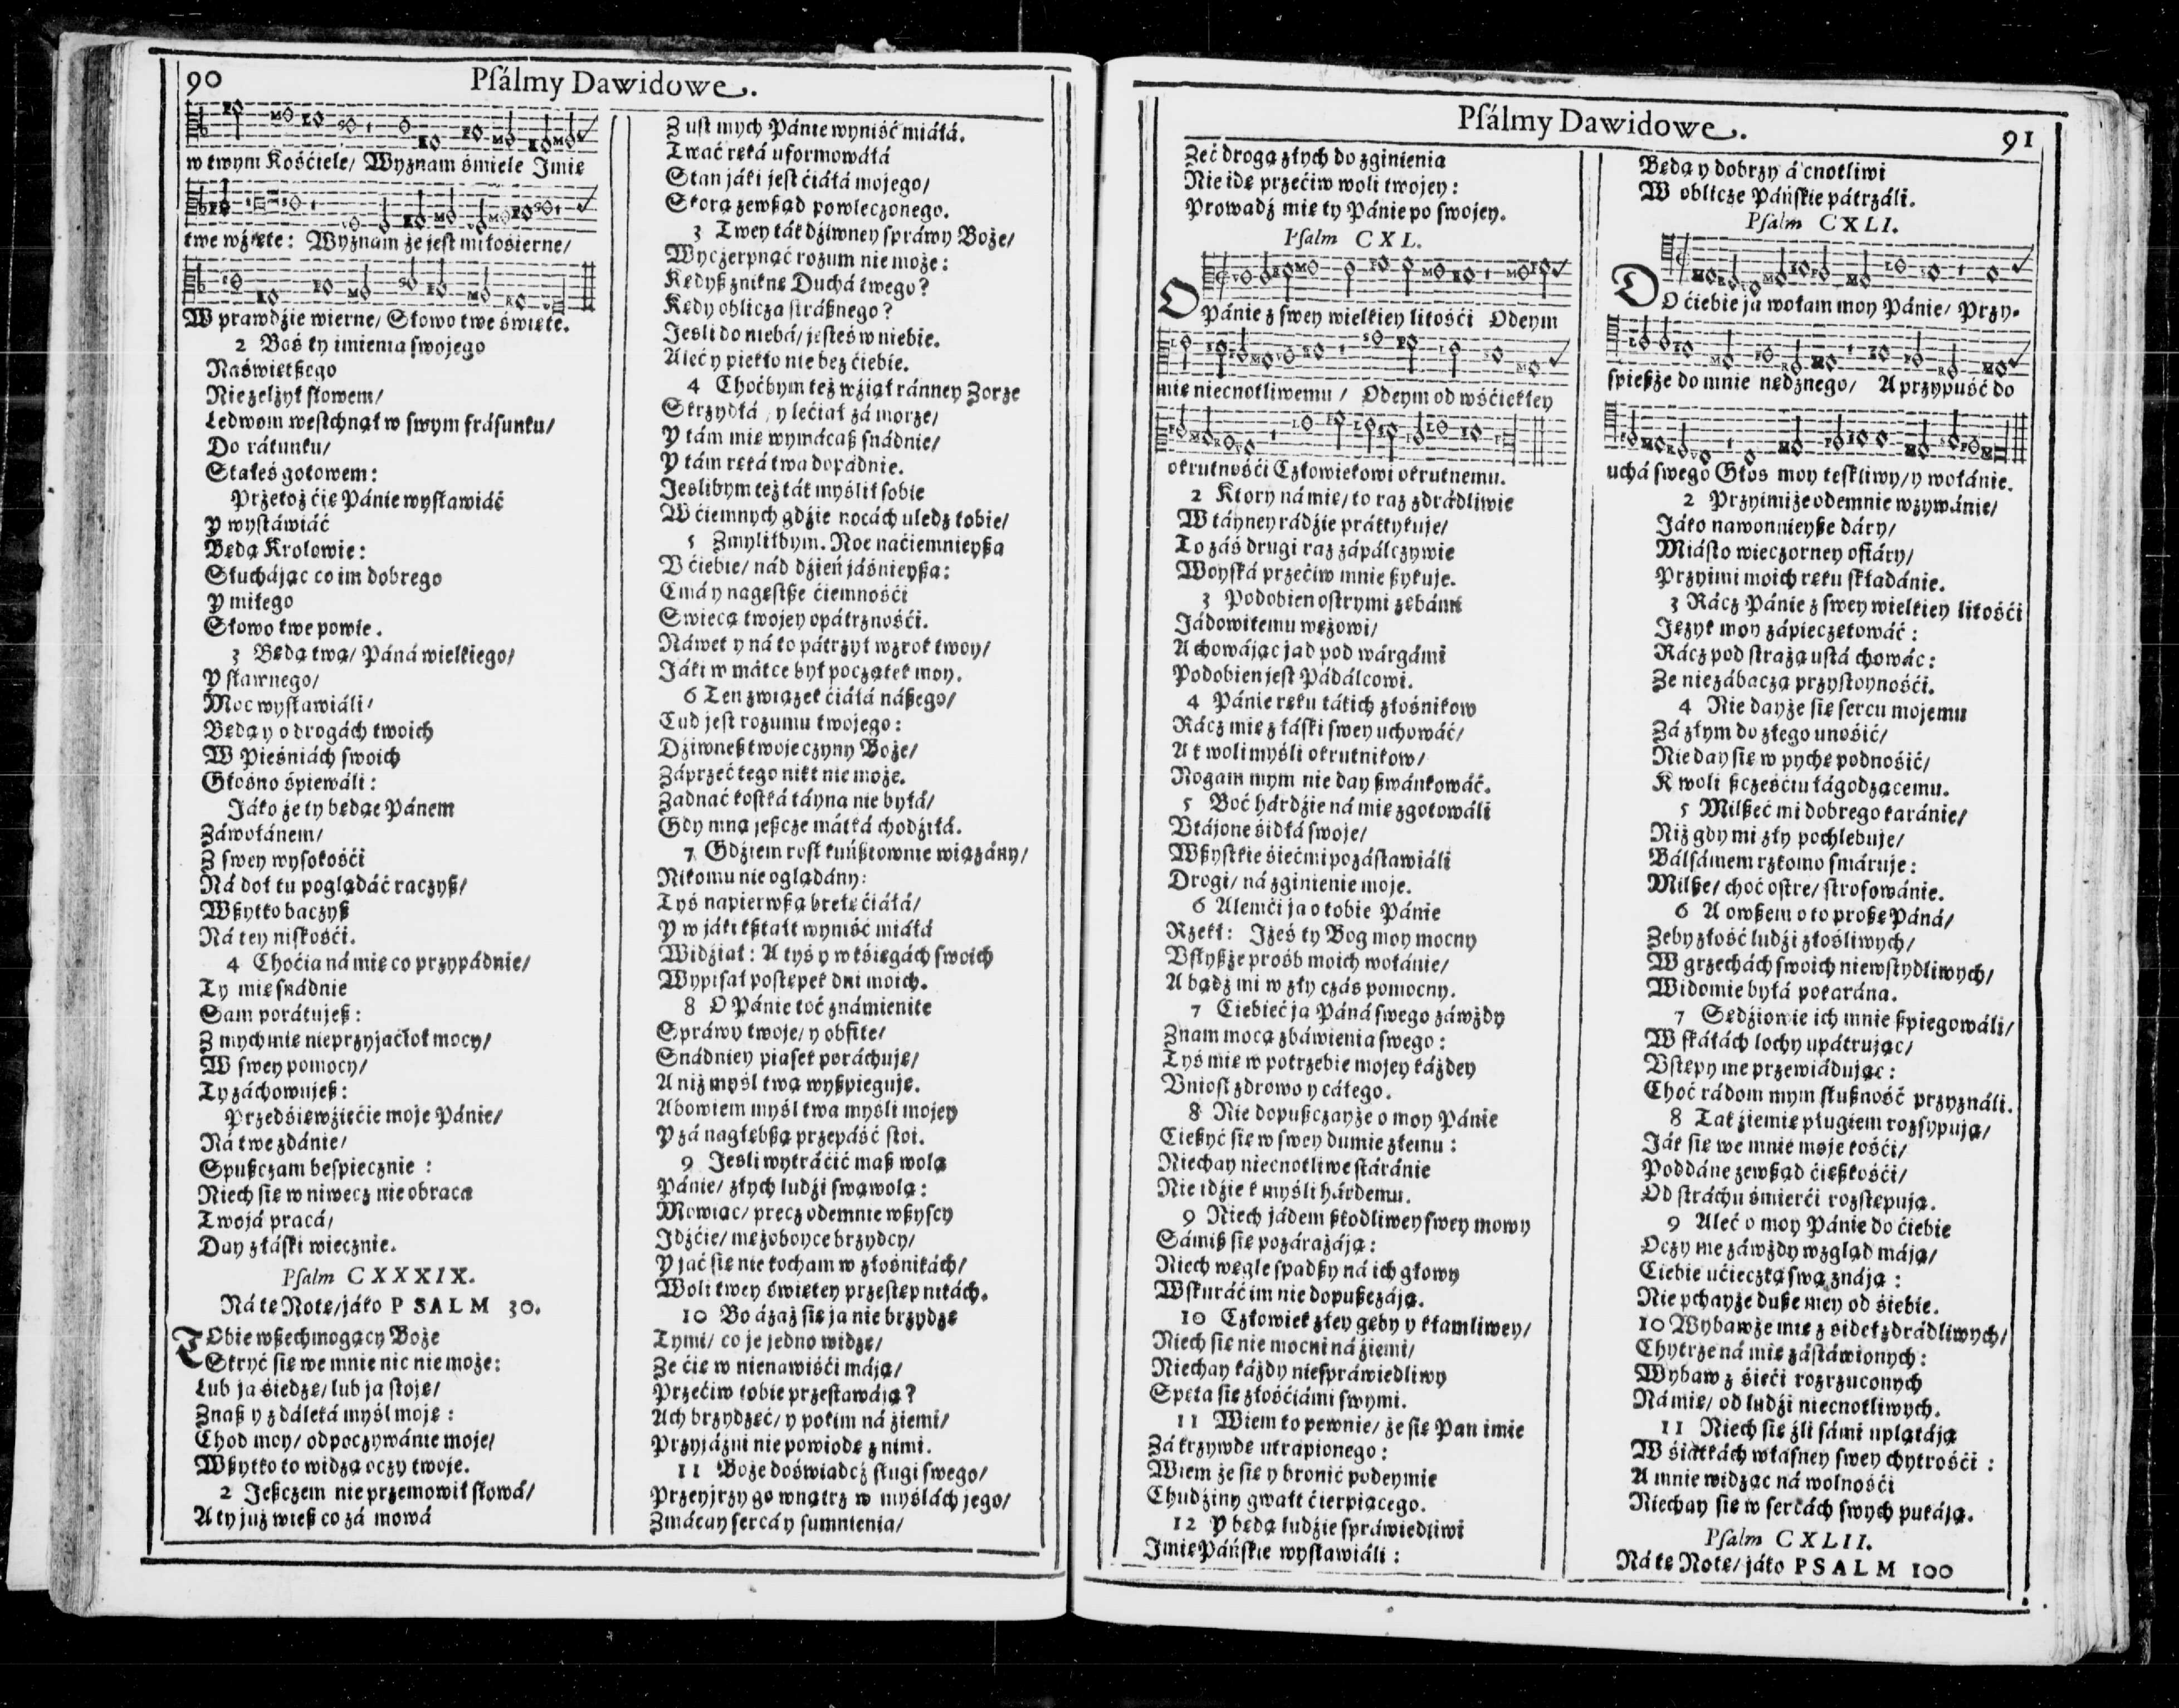 90
Pſálmy Dawidowe.
w twym Kośćiele/ Wyznam śmiele Imię
twe wźięte: Wyznam że jeſt miłośierne/
W prawdźie wierne/ Słowo twe święte.
2 Boś ty imienia swojego
Naświętßego
Nie zelżył słowem/
Ledwom weſtchnął w ſwym fráſunku/
Do rátunku/
Stałeś gotowem:
Przetoż ćię Pánie wysławiáć
Y wyſtáwiáć
Będą Krolowie:
Słuchájąc co im dobrego
Y miłego
Słowo twe powie.
3 Będą twą/ Páná wielkiego/
Y sławnego/
Moc wysławiáli/
Będą y o drogách twoich
W Pieśniách ſwoich
Głośno śpiewáli:
Jáko że ty będąc Pánem
Záwołánem/
Z ſwey wyſokośći
Ná doł tu poglądáć raczyß/
Wßytko baczyß
Ná tey niſkośći.
4 Choćia ná mię co przypádnie/
Ty mię ſnádnie
Sam porátujeß:
Z mych mię nieprzyjaćioł mocy/
W ſwey pomocy/
Ty záchowujeß:
Przedśięwźięćie moje Pánie/
Ná twe zdánie/
Spußczam beſpiecznie :
Niech ſię w niwecz nie obraca
Twojá pracá/
Day z łáſki wiecznie.
Pſalm CXXXIX.
Ná tę Notę/ jáko PSALM 30.
TObie wßechmogący Boże
Skryć ſię we mnie nic nie może:
Lub ja śiedzę/ lub ja ſtoję/
Znaß y z dáleká myśl moję :
Chod moy/ odpoczywánie moje/
Wßytko to widzą oczy twoje.
2 Jeßczem nie przemowił słowá/
A ty już wieß co zá mowá
Z uſt mych Pánie wyniść miáłá.
Twać ręká uformowáłá
Stan jáki jeſt ćiáłá mojego/
Skorą zewßąd powleczonego.
3 Twey ták dźiwney ſpráwy Boże/
Wyczerpnąć rozum nie może:
Kędyß zniknę Duchá twego?
Kędy oblicza ſtráßnego?
Jeſli do niebá/ jeſteś w niebie.
Aleć y piekło nie bez ćiebie.
4 Choćbym też wźiął ránney Zorze
Skrzydłá , y lećiał zá morze/
Y tám mię wymácaß ſnádnie/
Y tám ręká twa dopádnie.
Jeslibym też ták myślił ſobie
W ćiemnych gdźie nocách uledz tobie/
5 Zmyliłbym. Noc naćiemnieyßa
V ćiebie/ nád dźień jáśnieyßa:
Cmá y nagęſtße ćiemnośći
Swiecą twojey opátrznośći.
Náwet y ná to pátrzył wzrok twoy/
Jáki w mátce był początek moy.
6 Ten związek ćiáłá náßego/
Cud jeſt rozumu twojego:
Dźiwneß twoje czyny Boże/
Záprzeć tego nikt nie może.
Zadnać koſtká táyna nie byłá/
Gdy mną jeßcze mátká chodźiłá.
7 Gdźiem roſł kuńßtownie wiązány/
Nikomu nie oglądány:
Tyś napierwßą brełę ćiáłá/
Y w jáki kßtałt wyniść miáłá
Widźiał: A tyś y w kśięgách ſwoich
Wypiſał poſtępek dni moich.
8 O Pánie toć známienite
Spráwy twoje/ y obfite/
Snádniey piaſek poráchuję/
A niż myśl twą wyßpieguję.
Abowiem myśl twa myśli mojey
Y zá nagłębßą przepáść ſtoi.
9 Jeſli wytráćić maß wolą
Pánie/ złych ludźi ſwąwolą:
Mowiąc/ precz odemnie wßyſcy
Jdźćie/ mężoboyce brzydcy/
Y jać ſię nie kocham w złośnikách/
Woli twey świętey przeſtępnikách.
10 Bo ázaż ſię ja nie brzydzę
Tymi/ co je jedno widzę/
Ze ćię w nienawiśći máją/
Przećiw tobie przeſtawáją?
Ach brzydzęć/ y pokim ná źiemi/
Przyjáźni nie powiodę z nimi.
11 Boże doświadcż sługi ſwego/
Przeyjrzy go wnątrz w myślách jego/
Zmácay ſercá y ſumnienia/
Pſálmy Dawidowe.
91
Żeć drogą złych do zginienia
Nie idę przećiw woli twojey:
Prowadź mię ty Pánie po ſwojey.
Pſalm CXL.
O Pánie z ſwey wielkiey litośći Odeym
mię niecnotliwemu / Odeym od wśćiekłey
okrutnośći Człowiekowi okrutnemu.
2 Ktory ná mię/ to raz zdrádliwie
W táyney rádźie práktykuje/
To záś drugi raz zápálczywie
Woyſká przećiw mnie ßykuje.
3 Podobien oſtrymi zębámi
Jádowitemu wężowi/
A chowájąc jad pod wárgámi
Podobien jeſt Pádálcowi.
4 Pánie ręku tákich złośnikow
Rácz mię z łáſki ſwey uchowáć/
A k woli myśli okrutnikow/
Nogam mym nie day ßwánkowáć.
5 Boć hárdźie ná mię zgotowáli
Vtájone śidłá ſwoje/
Wßyſtkie śiećmi pozáſtawiáli
Drogi/ ná zginienie moje.
6 Alemći ja o tobie Pánie
Rzekł: Jżeś ty Bog moy mocny
Vsłyßże prośb moich wołánie/
A bądź mi w zły czás pomocny.
7 Ciebieć ja Páná ſwego záwżdy
Znam mocą zbáwienia ſwego :
Tyś mię w potrzebie mojey káżdey
Vnioſł zdrowo y cáłego.
8 Nie dopußczayże o moy Pánie
Cießyć ſię w ſwey dumie złemu :
Niechay niecnotliwe ſtáránie
Nie idźie k myśli hárdemu.
9 Niech jádem ßkodliwey ſwey mowy
Sámiß ſię pozárażáją:
Niech węgle ſpadßy ná ich głowy
Wſkuráć im nie dopußczáją.
10 Człowiek złey gęby y kłamliwey/
Niech ſię nie mocni ná źiemi/
Niechay káżdy nieſpráwiedliwy
Spęta ſię złośćiámi ſwymi.
11 Wiem to pewnie/ że ſię Pan imie
Zá krzywdę utrapionego :
Wiem że ſię y bronić podeymie
Chudźiny gwałt ćierpiącego.
12 Y będą ludźie ſpráwiedliwi
Jmię Páńſkie wysławiáli :
Będą y dobrzy á cnotliwi
W oblicze Páńſkie pátrzáli.
Pſalm CXLI.
DO ćiebie ja wołam moy Pánie/ Przy-
ſpießże do mnie nędznego/ A przypuść do
uchá ſwego Głos moy teſkliwy/ y wołánie.
2 Przyimiże odemnie wzywánie/
Jáko nawonnieyße dáry/
Miáſto wieczorney ofiáry/
Przyimi moich ręku składánie.
3 Rácz Pánie z ſwey wielkiey litośći
Język moy zápieczętowáć :
Rácz pod ſtrażą uſtá chowáć:
Ze nie zábaczą przyſtoynośći.
4 Nie dayże ſię ſercu mojemu
Zá złym do złego unośić/
Nie day ſię w pychę podnośić/
K woli ßczęśćiu łágodzącemu.
5 Milßeć mi dobrego karánie/
Niż gdy mi zły pochlebuje/
Bálſámem rzkomo ſmáruje:
Milße/ choć oſtre/ ſtrofowánie.
6 A owßem o to proßę Páná/
Żeby złość ludźi złośliwych/
W grzechách ſwoich niewſtydliwych/
Widomie byłá pokarána.
7 Sędźiowie ich mnie ßpiegowáli/
W ſkáłách lochy upátrując/
Vſtępy me przewiádując:
Choć rádom mym słußność przyználi.
8 Tak źiemię pługiem rozſypują/
Ják ſię we mnie moje kośći/
Poddáne zewßąd ćięßkośći/
Od ſtráchu śmierći rozſtępują.
9 Aleć o moy Pánie do ćiebie
Oczy me záwżdy wzgląd máją/
Ciebie ućieczką ſwą znáją :
Nie pchayże dußę mey od śiebie.
10 Wybawże mię z śideł zdrádliwych/
Chytrze ná mię záſtáwionych:
Wybaw z śieći rozrzuconych
Ná mię/ od ludźi niecnotliwych.
11 Niech ſię źli ſámi uplątáją
W śiátkách własney ſwey chytrośći :
A mnie widząc ná wolnośći
Niechay ſię w ſercách ſwych pukáją.
Pſalm CXLII.
Ná tę Notę/ jáko PSALM 100